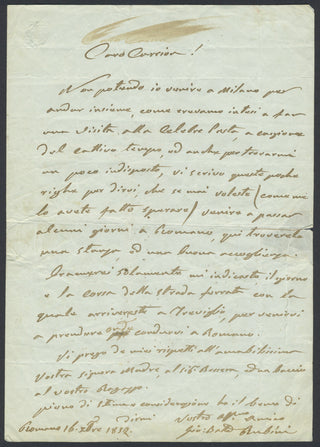 Caro Corrier!
Non potendo io venire a Milano per
andar insieme, come eravamo intesi a far
una visita alla Celebre Pasta, a cagione
del cattivo tempo, ed anche per trovarmi
un poco indisposto, vi scrivo queste poche
righe per dirvi, che se mai voleste (come me
lo avete fatto sperare) venire a passar
alcuni giorni a Romano, qui troverete
una stanza, ed una buona accoglienza.
Bramerei solamente mi indicaste il giorno
e la corsa della strada ferrata con la
quale arrivereste a Treviglio, per venirvi
a prendere onde condurvi a Romano.
Vi prego de' miei rispetti all'amabilissima
vostra signora Madre, al Sigr. ed un bacio
al vostro Ragazzo.
Pieno di stima e considerazione ho il bene di
dirmi Vostro Aff. Amico
Romano 16 1852 Gio: Batta Rubini